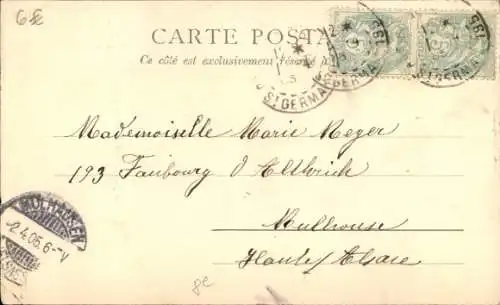 6€
CARTE POSTA
Ce côté est exclusivement réservé
ST GERMA
ST GERMA
ST GERMA
Mademoiselle Marie Meyer
193 Faubourg d'Altkirch
Mulhouse
Haute/Alsace
MÜLHAUSEN
2.4.05.6-7
(ELSASS)
8e